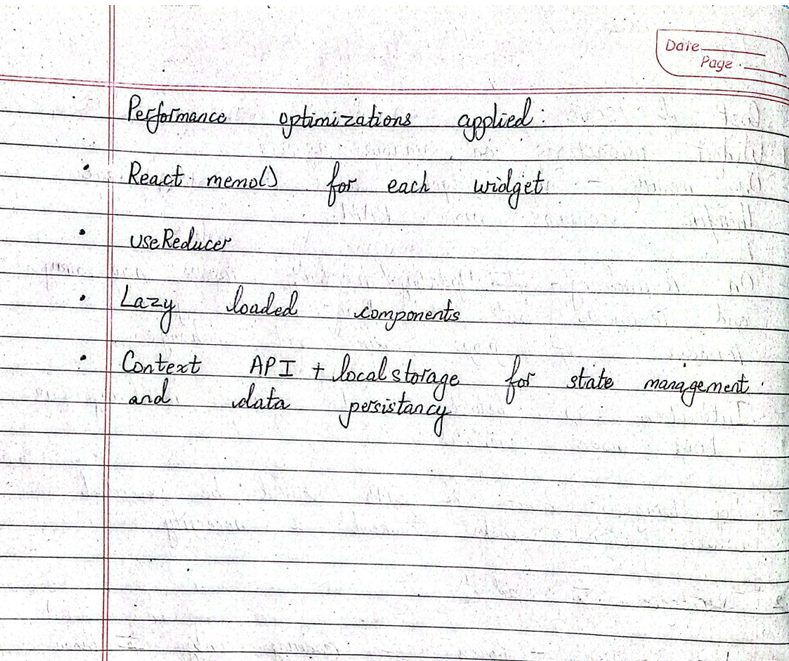 Date
Page
Performance optimizations applied:
• React memo() for each widget
• useReducer
• Lazy loaded components
• Context API + localstorage for state management
and data persistancy